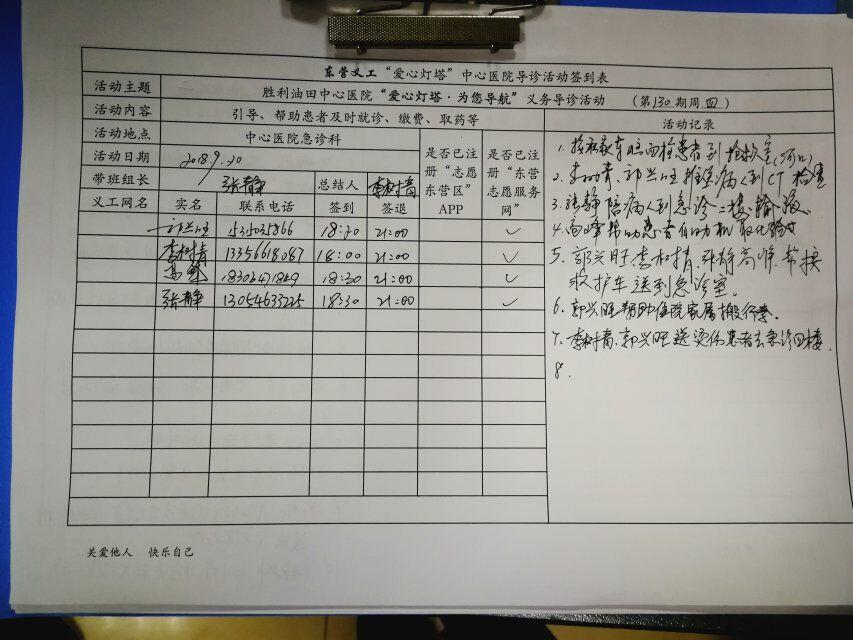 东营义工“爱心灯塔”中心医院导诊活动签到表
活动主题 胜利油田中心医院“爱心灯塔·为您导航”义务导诊活动 (第130期周四)
活动内容 引导、帮助患者及时就诊、缴费、取药等 活动记录
活动地点 中心医院急诊科 是否已注册“志愿东营区”APP 是否已注册“东营志愿服务网”
活动日期 2018.9.20
带班组长 张静 总结人 李树青
义工网名 实名 联系电话 签到 签退
郭兴旺 18:30 21:00 ✓
李树青 13356618087 18:00 21:00 ✓
高峰 18303471849 18:30 21:00 ✓
张静 13054633225 18:30 21:00 ✓
1. 患者到抢救室
2. 李树青、郭兴旺推送病人到CT检查
3. 张静陪病人到急诊二楼输液
4. 高峰帮助患者自助机取化验
5. 郭兴旺李树青、张静高峰、帮换
救护车送到急诊室。
6. 郭兴旺帮助住院家属搬行李。
7. 李树青、郭兴旺送烫伤患者去急诊四楼.
8.
关爱他人 快乐自己